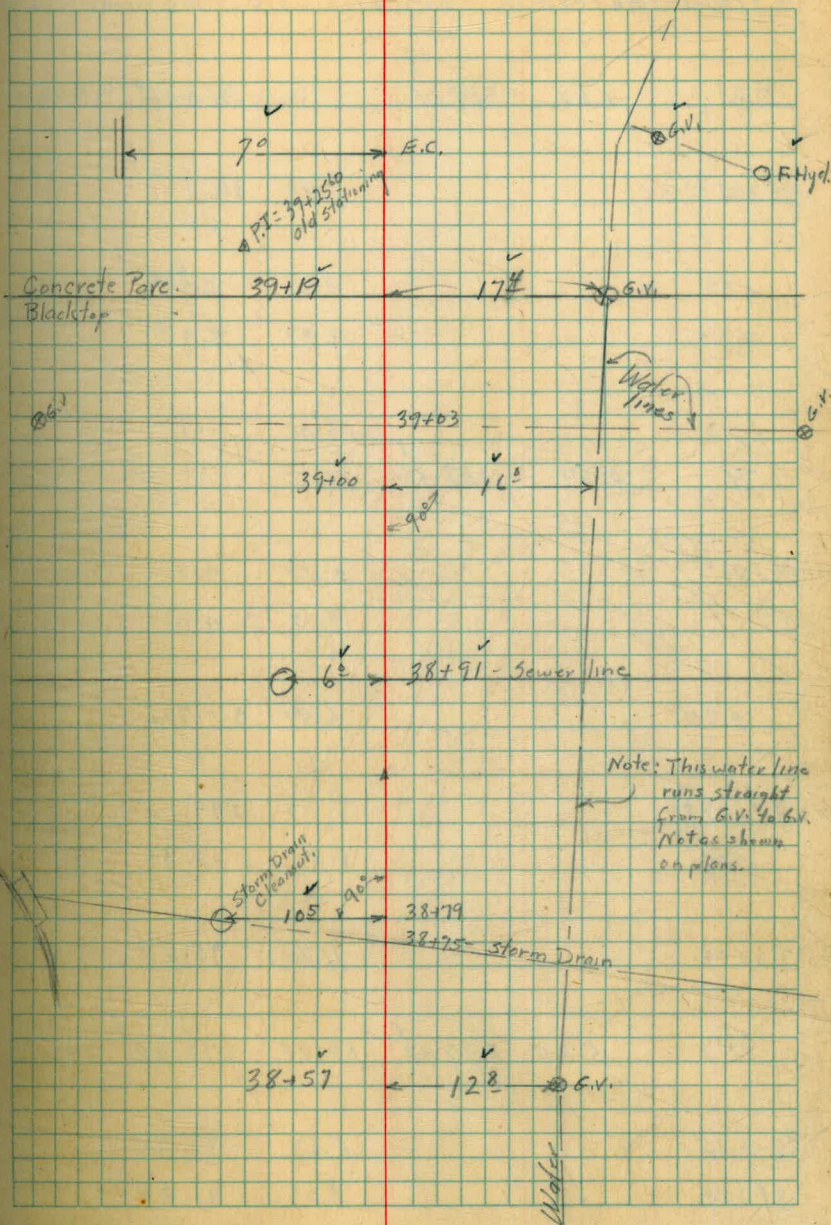 G.V.
7º E.C.
F.Hyd.
P.I = 39+25⁶⁰
old stationing
Concrete Pave. 39+19 17⁴ G.V.
Blacktop
Water
lines
G.V. 39+03 G.V.
39+00 16⁸
90°
6º 38+91 - Sewer line
Note: This water line
runs straight
from G.V. to G.V.
Not as shown
on plans.
Storm Drain
Cleanout.
90°
10⁵ 38+79
38+75 - Storm Drain
38+57 12⁸ G.V.
Water